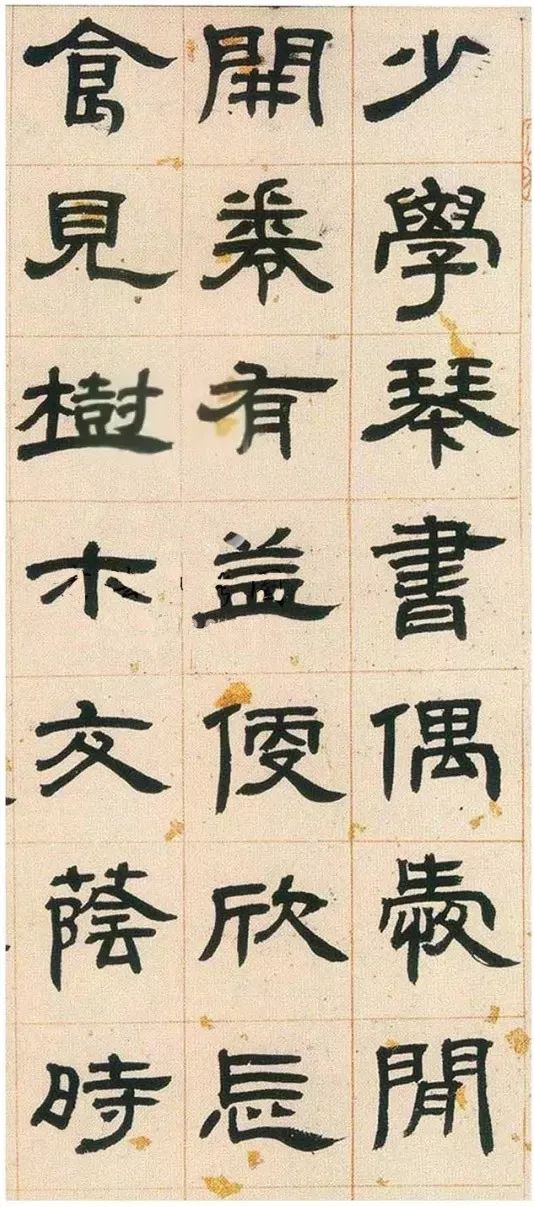 少學琴書偶愛閒
開卷有益便欣忘
食見樹木交蔭時